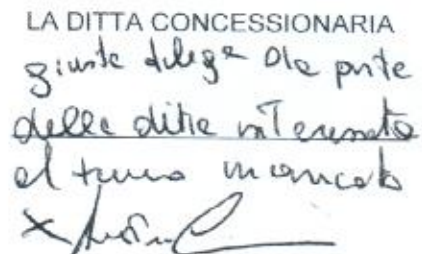 LA DITTA CONCESSIONARIA
giusta delega da parte
della ditta interessata
al turno mancato
X